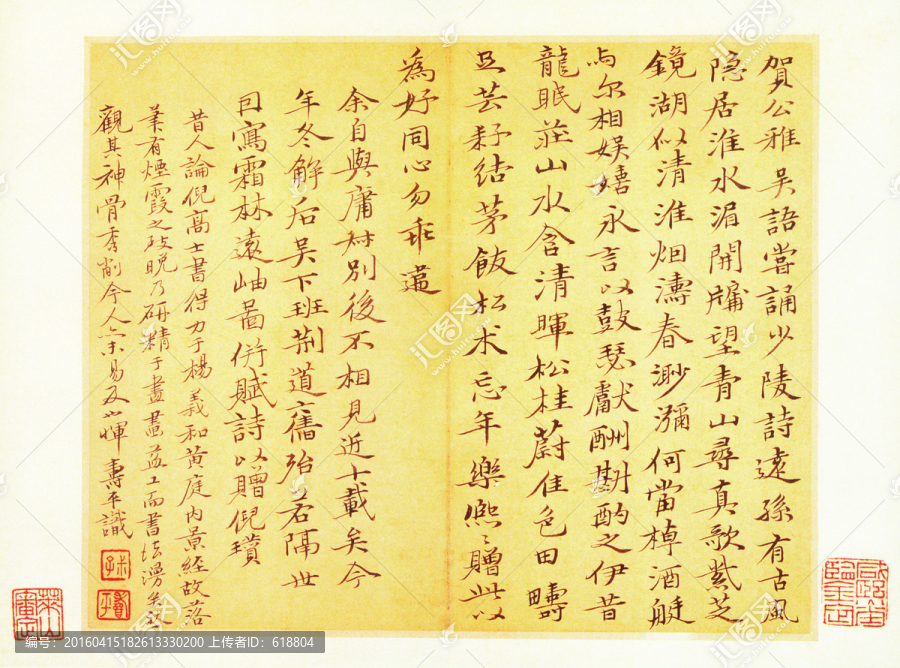 賀公雅吴語嘗誦少陵詩遠孫有古風
隐居淮水湄開牖望青山尋真歌紫芝
鏡湖似清淮烟濤春渺瀰何當棹酒艇
与尔相娱嬉永言以鼓瑟獻酬斟酌之伊昔
龍眠莊山水含清暉松桂蔚佳色田疇
足芸耔结茅飯松术忘年樂熙〻贈此以
為好同心勿乖違
余自與庸材别後不相見近十載矣今
年冬解后吴下班荆道舊殆若隔世
因寫霜林遠岫啚併賦詩以贈倪瓚
昔人論倪高士書得力于楊羲和黄庭内景經故落
筆有煙霞之致晚乃研精于畫畫益工而書法
觀其神骨秀削今人亦易及也惲壽平識
汇图网
www.huitu.com
No: 20160415182613330200 上传者ID: 618804